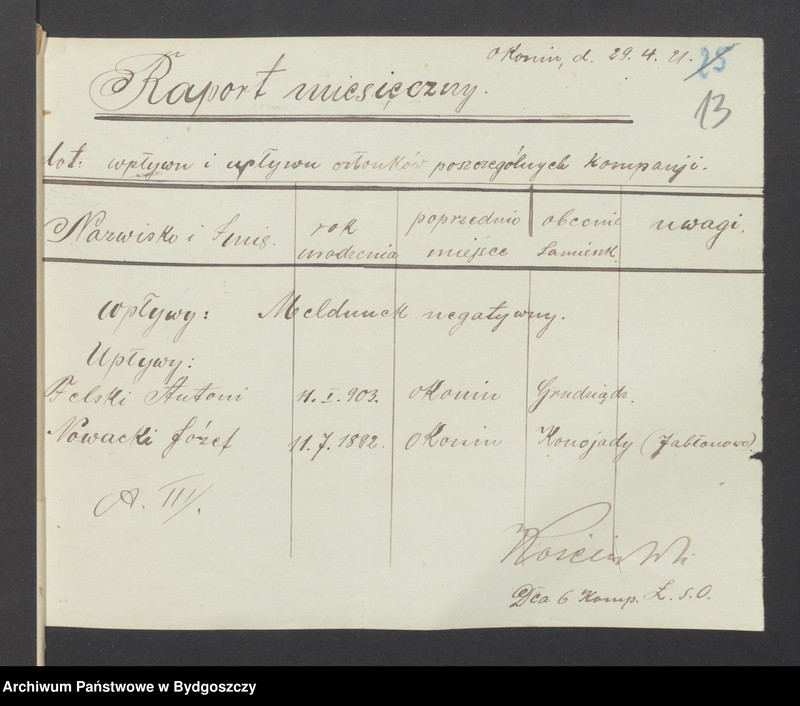 Okonin, d. 29.4.21.
25
13
Raport miesięczny.
dot: wpływu i upływu członków poszczególnych Kompanji.
Nazwisko i Imię. rok urodzenia poprzednio miejsce obecnie zamieszk. uwagi.
Wpływy: Meldunek negatywny.
Upływy:
Felski Antoni 11.I.903. Okonin Grudziądz.
Nowacki Józef 11.7.1882. Okonin Konojady (Jabłonowo).
A. III/.
Dca 6 Komp. Z. S. O.
Archiwum Państwowe w Bydgoszczy